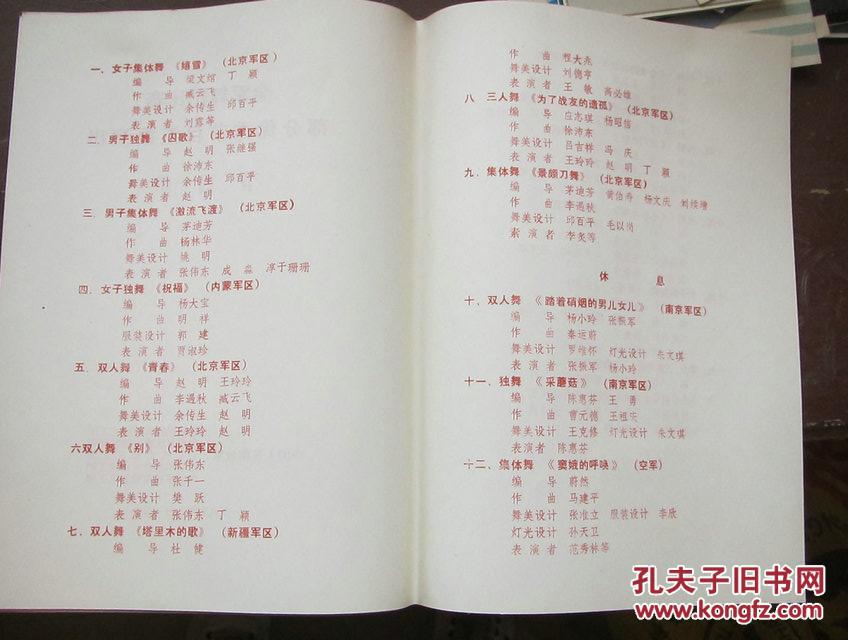 一、女子集体舞 《嬉雪》 (北京军区)
编 导 梁文绾 丁 颖
作 曲 臧云飞
舞美设计 余传生 邱百平
表演者 刘露等
二、男子独舞 《囚歌》 (北京军区)
编 导 赵 明 张继强
作 曲 徐沛东
舞美设计 余传生 邱百平
表演者 赵 明
三、男子集体舞 《激流飞渡》 (北京军区)
编 导 茅迪芳
作 曲 杨林华
舞美设计 姚 明
表演者 张伟东 成 淼 淳于珊珊
四、女子独舞 《祝福》 (内蒙军区)
编 导 杨大宝
作 曲 明 祥
服装设计 郭 建
表演者 贾淑珍
五、双人舞 《青春》 (北京军区)
编 导 赵 明 王玲玲
作 曲 李遇秋 臧云飞
舞美设计 余传生 赵 明
表演者 王玲玲 赵 明
六双人舞 《别》 (北京军区)
编 导 张伟东
作 曲 张千一
舞美设计 樊 跃
表演者 张伟东 丁 颖
七、双人舞 《塔里木的歌》 (新疆军区)
编 导 杜 健
作 曲 程大兆
舞美设计 刘德亨
表演者 王 敏 高必雄
八 三人舞 《为了战友的遗孤》 (北京军区)
编 导 应志琪 杨昭信
作 曲 徐沛东
舞美设计 吕吉祥 冯 庆
表演者 王玲玲 赵 明 丁 颖
九、集体舞 《景颇刀舞》 (北京军区)
编 导 茅迪芳 黄伯寿 杨文庆 刘续增
作 曲 李遇秋
舞美设计 邱百平 毛以岗
表演者 李炙等
休 息
十、双人舞 《踏着硝烟的男儿女儿》 (南京军区)
编 导 杨小玲 张振军
作 曲 秦运蔚
舞美设计 罗维怀 灯光设计 朱文琪
表演者 张振军 杨小玲
十一、独舞 《采蘑菇》 (南京军区)
编 导 陈惠芬 王 勇
作 曲 曹元德 王祖庆
舞美设计 王克修 灯光设计 朱文琪
表演者 陈惠芬
十二、集体舞 《窦娥的呼唤》 (空军)
编 导 蔚然
作 曲 马建平
舞美设计 张准立 服装设计 李欣
灯光设计 孙天卫
表演者 范秀林等
孔夫子旧书网
www.kongfz.com